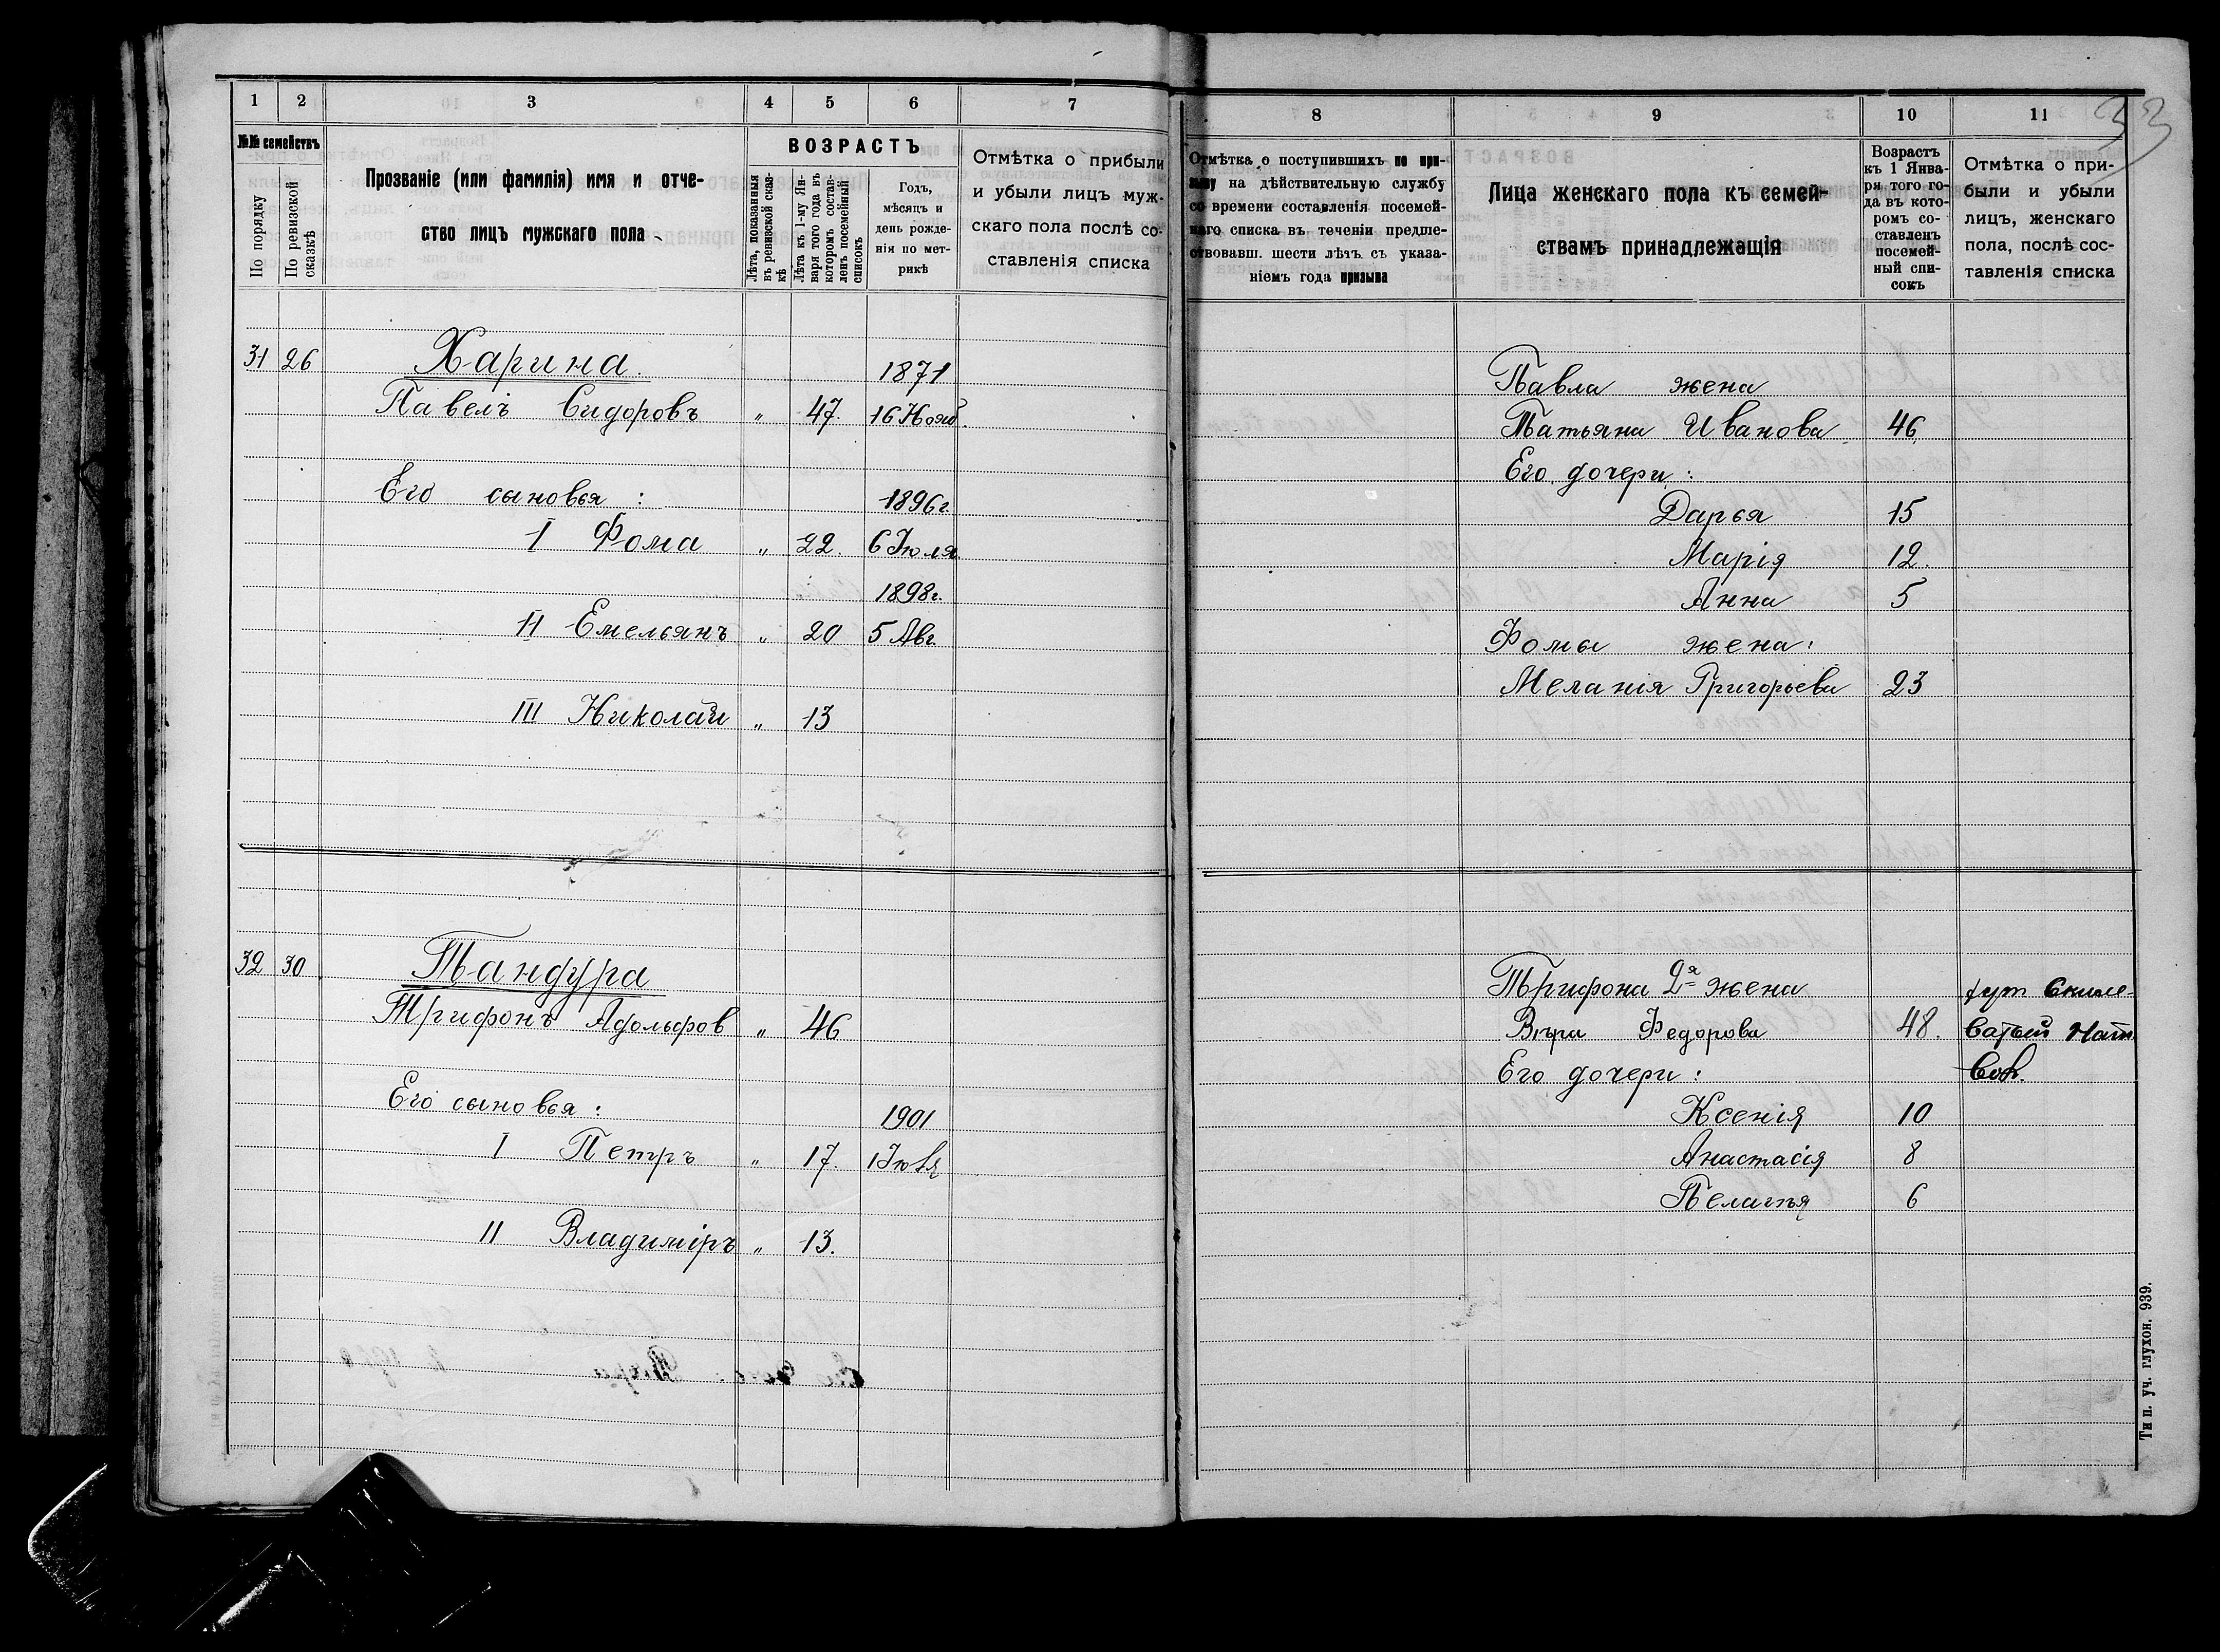 1 2 3 4 5 6 7
№№ семействъ
По порядку
По ревизской сказкѣ
Прозваніе (или фамилія) имя и отче-
ство лицъ мужскаго пола
ВОЗРАСТЪ
Лѣта, показанныя
въ ревизской сказ-
кѣ
Лѣта къ 1-му Ян-
варя того года въ
которомъ состав-
ленъ посемейный
списокъ
Годъ,
мѣсяцъ и
день рожде-
нія по мет-
рикѣ
Отмѣтка о прибыли
и убыли лицъ муж-
скаго пола послѣ со-
ставленія списка
31 26 Харина. 1871
Павелъ Сидоровъ „ 47. 16 Нояб.
Его сыновья : 1896г.
I Фома „ 22. 6 Іюля
1898г.
II Емельянъ „ 20 5 Авг
III Николай „ 13
32 30 Тандура
Трифонъ Адольфов „ 46
Его сыновья : 1901
I Петръ „ 17. 1 Іюля
II Владиміръ „ 13.
8 9 10 11
33
Отмѣтка о поступившихъ по при-
зыву на дѣйствительную службу
со времени составленія посемей-
наго списка въ теченіи предше-
ствовавш. шести лѣтъ съ указа-
ніемъ года призыва
Лица женскаго пола къ семей-
ствамъ принадлежащія
Возрастъ
къ 1 Янва-
ря того го-
да въ кото-
ромъ со-
ставленъ
посемей-
ный спи-
сокъ
Отмѣтка о при-
были и убыли
лицъ, женскаго
пола, послѣ сос-
тавленія списка
Павла жена
Татьяна Иванова 46
Его дочери :
Дарья 15
Марія 12.
Анна 5
Фомы жена :
Меланія Григорьева 23
Трифона 2я жена
Вѣра Федорова 48.
Его дочери :
Ксенія 10
Анастасія 8
Пелагѣя 6
Тип. уч. глухон. 939.